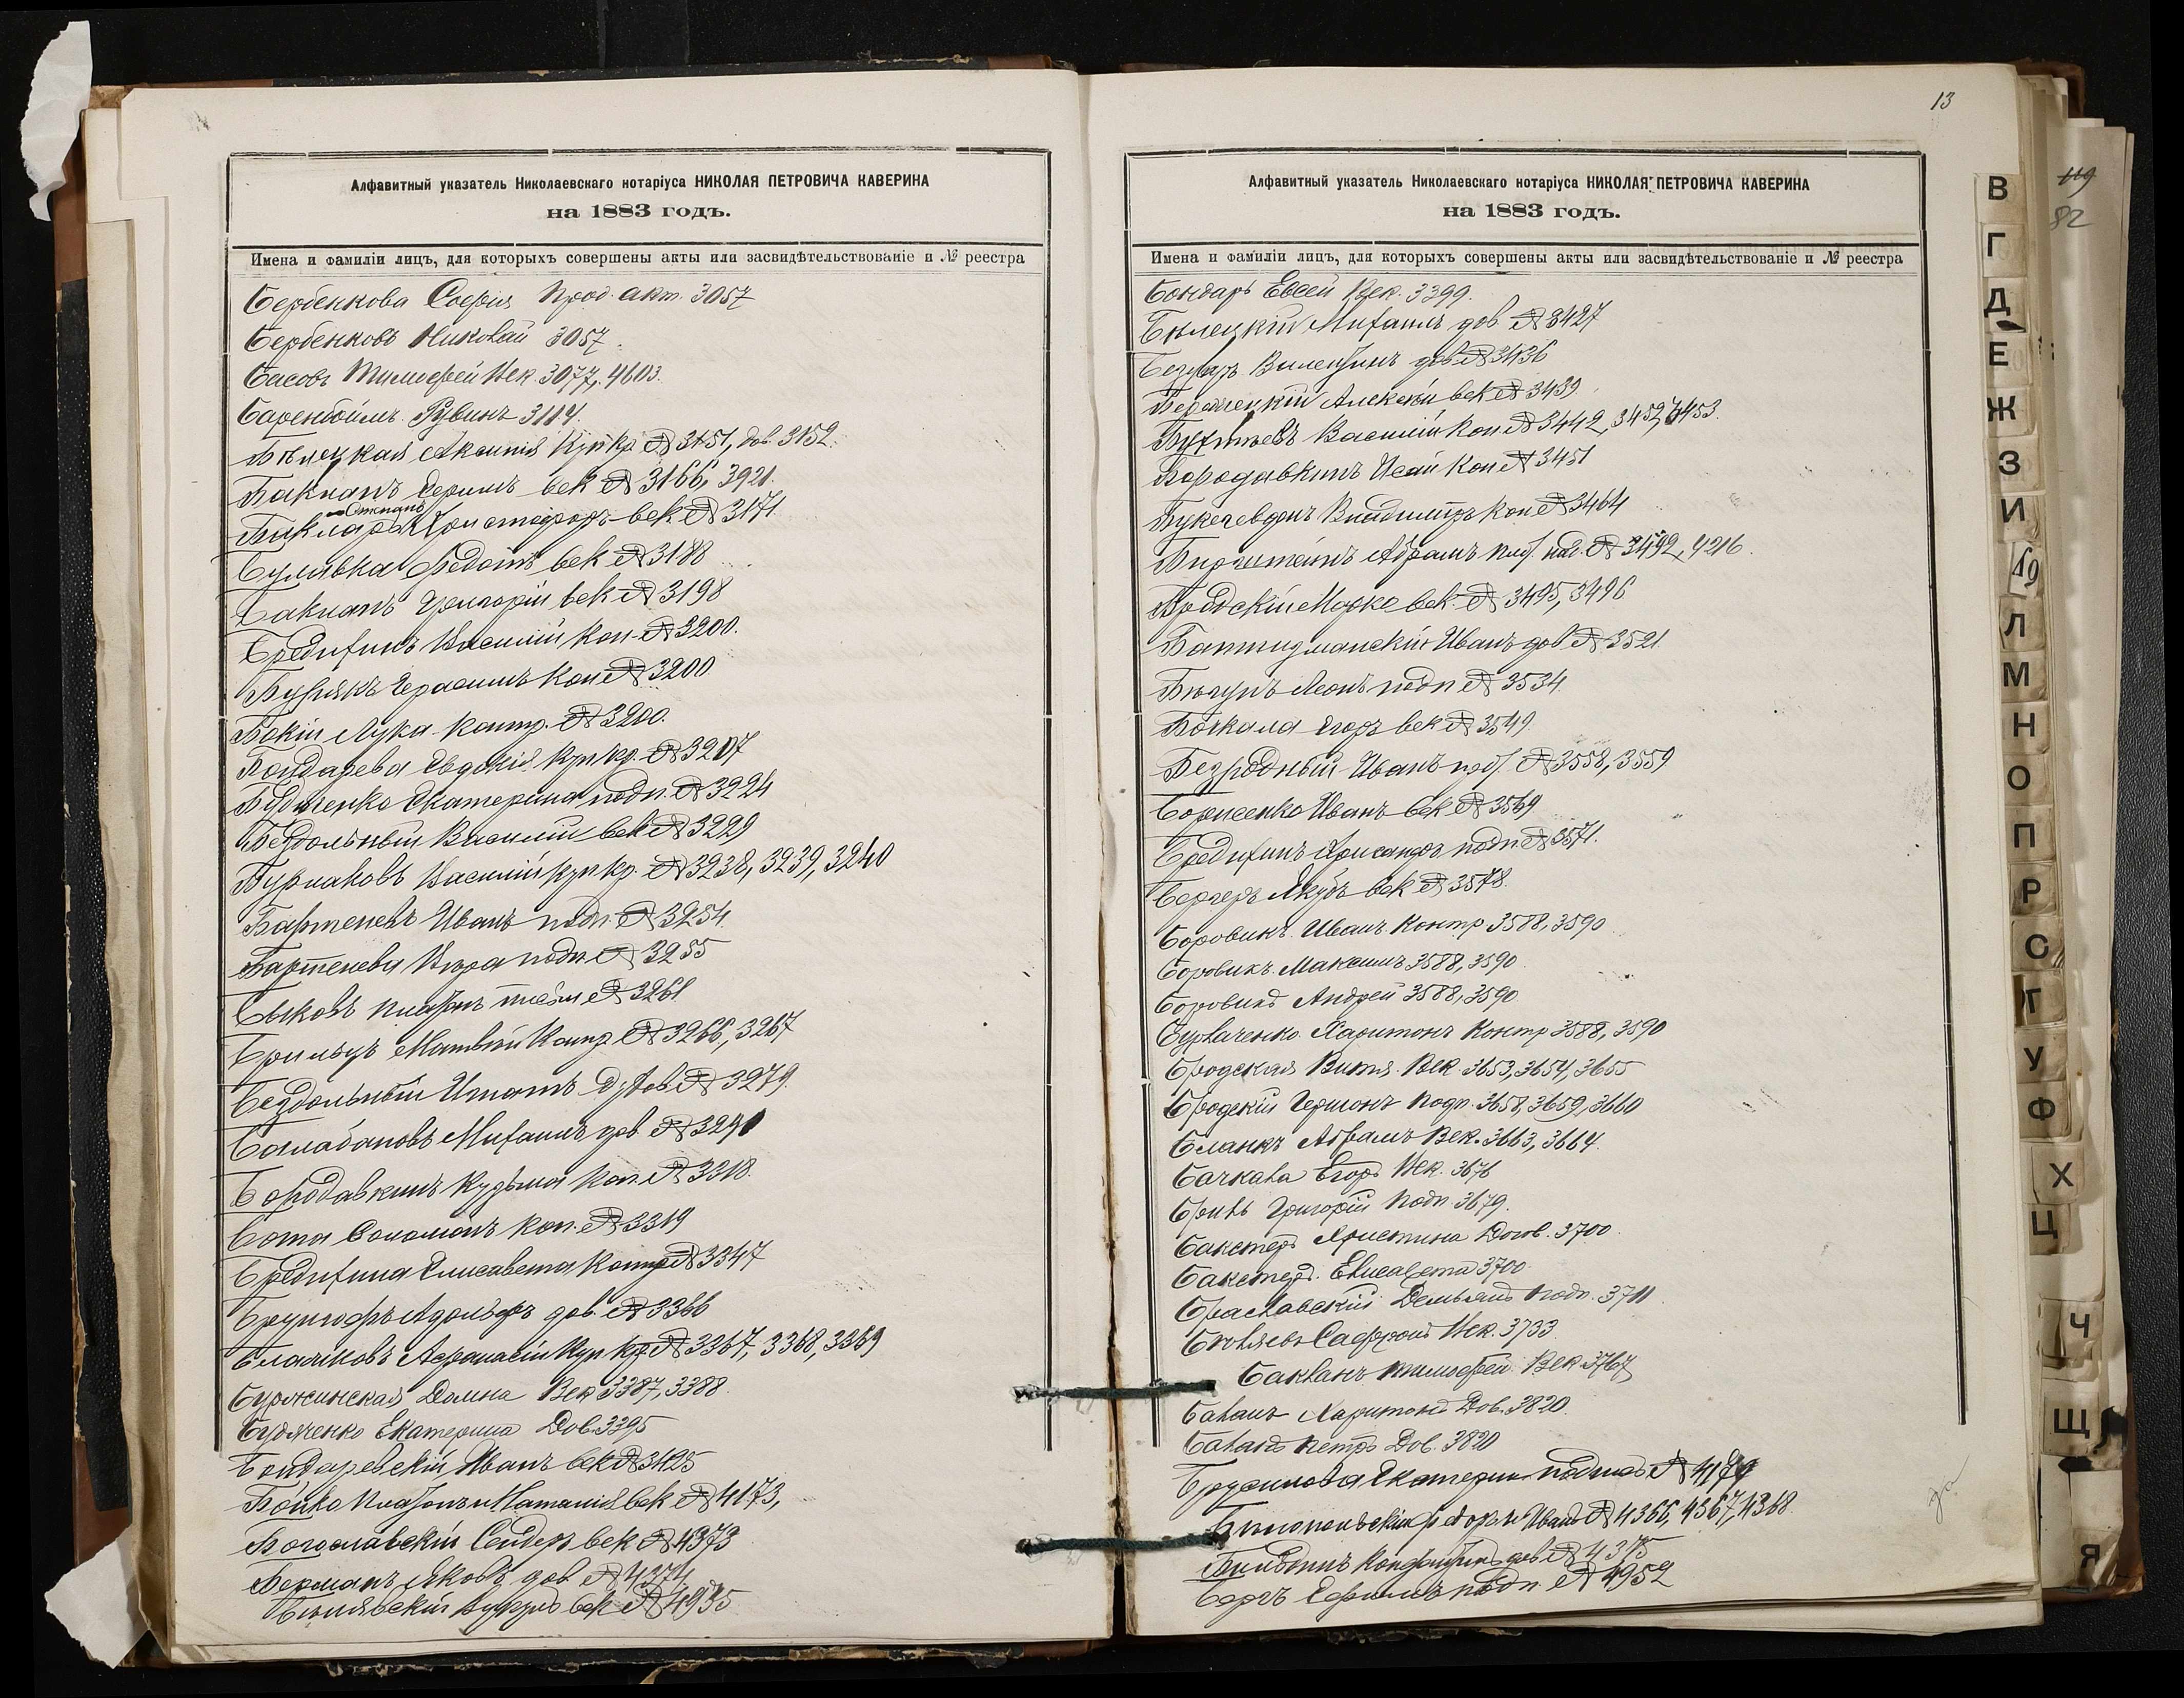 Алфавитный указатель Николаевскаго нотаріуса НИКОЛАЯ ПЕТРОВИЧА КАВЕРИНА
на 1883 годъ.
Имена и фамиліи лицъ, для которыхъ совершены акты или засвидѣтельствованіе и № реестра
Бербенкова Софія Прод. акт. 3057
Бербенковъ Николай 3057
Басовъ Тимофей Век. 3077, 4603.
Баренбоймъ Рувинъ 3114
Бѣлецкая Аксинія Куп кр № 3151, дов. 3152.
Бакланъ Гершъ век № 3166, 3921.
Степанъ
Христофоръ век № 3171
Булавка Федотъ век № 3188
Бакланъ Григорій век № 3198
Бредихинъ Василій Коп № 3200.
Бурякъ Герасимъ Коп № 3200
Бокій Лука контр. № 3200.
Бондарева Евдокія Куп кр. № 3207
Будяченко Екатерина подп. № 3224
Бездольный Василій век № 3229
Бурлаковъ Василій куп кр. № 3238, 3239, 3240
Бартеневъ Иванъ подп. № 3254
Бартенева Вѣра подп. № 3255
Быковъ Платонъ № 3261
Матвѣй Контр № 3266, 3267
Бездольный Игнатъ № 3279.
Балабановъ Михаилъ дов № 3291
Бородавкинъ Кузьма Коп. № 3318.
Бота Соломонъ Коп. № 3319
Бредихина Елисавета Контр № 3347
Адольфъ дов. № 3366
Афанасій Куп кр № 3367, 3368, 3369
Буржинская Домна Век 3387, 3388.
Будяченко Екатерина Дов. 3395
Бондаревскій Иванъ век № 3425
Бойко Платонъ и Наталія век № 4173,
Богославскій Сендеръ век № 4373
Берманъ Яковъ дов № 4374
век № 4935
13
Алфавитный указатель Николаевскаго нотаріуса НИКОЛАЯ ПЕТРОВИЧА КАВЕРИНА
на 1883 годъ.
Имена и фамиліи лицъ, для которыхъ совершены акты или засвидѣтельствованіе и № реестра
Бондарь Евсей Век. 3399.
Бѣлецкій Михаилъ дов № 3427
дов № 3436
Алексѣй век № 3439
Василій Коп. № 3442, 3452, 3453.
Бородавкинъ Исай Коп № 3451
Владиміръ Коп № 3464
Бирштейнъ Абрамъ № 3492, 4216.
Бродскій Морко век. № 3495, 3496
Иванъ дов № 3521
Бѣгунъ Леонъ подп № 3534
Бочкала Егоръ век № 3549.
Безродный Иванъ № 3558, 3559
Борисенко Иванъ век № 3569
Бредихинъ подп № 3571.
Бергеръ Якубъ век № 3578.
Боровикъ Иванъ Контр 3588, 3590
Боровикъ Максимъ 3588, 3590
Боровикъ Андрей 3588, 3590
Бурлаченко Харитонъ Контр 3588, 3590
Бродская Витя Век. 3653, 3654, 3655
Бродскій Гершонъ Подп. 3658, 3659, 3660
Бланкъ Абрамъ Век. 3663, 3664.
Бачкала Егоръ Век. 3676
Бриль Григорій Подп. 3679.
Бакстеръ Христина Догов. 3700
Бакстеръ Елисавета 3700
Браславскій Демьянъ подп. 3711
Сафронъ Век. 3733
Бакланъ Тимофей Век. 3767
Баланъ Харитонъ Дов. 3820.
Баланъ Петръ Дов. 3820
Брусилова Екатерина № 4179
Федоръ и Иванъ № 4366, 4367, 4368.
дов № 4375
Бергъ Ефимъ подп № 4952
119
82
В
Г
Д
Е
Ж
З
И
Л
М
Н
О
П
Р
С
Т
У
Ф
Х
Ц
Ч
Щ
Я